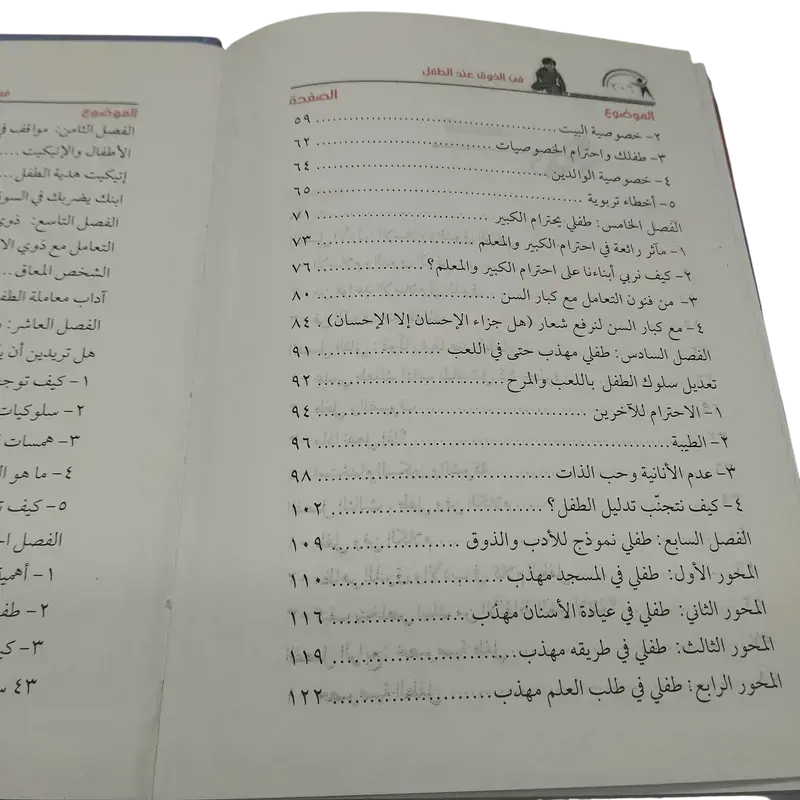 ٢٠٦
فن الذوق عند الطفل
الموضوع الصفحة
٢- خصوصية البيت ........ ٥٩
٣- طفلك واحترام الخصوصيات ........ ٦٢
٤- خصوصية الوالدين ........ ٦٤
٥- أخطاء تربوية ........ ٦٥
الفصل الخامس: طفلي يحترام الكبير ........ ٧١
١- مآثر رائعة في احترام الكبير والمعلم ........ ٧٣
٢- كيف نربي أبناءنا على احترام الكبير والمعلم؟ ........ ٧٦
٣- من فنون التعامل مع كبار السن ........ ٨٠
٤- مع كبار السن لنرفع شعار (هل جزاء الإحسان إلا الإحسان) . ٨٤
الفصل السادس: طفلي مهذب حتى في اللعب ........ ٩١
تعديل سلوك الطفل باللعب والمرح ........ ٩٢
١- الاحترام للآخرين ........ ٩٤
٢- الطيبة ........ ٩٦
٣- عدم الأنانية وحب الذات ........ ٩٨
٤- كيف نتجنّب تدليل الطفل؟ ........ ١٠٢
الفصل السابع: طفلي نموذج للأدب والذوق ........ ١٠٩
المحور الأول: طفلي في المسجد مهذب ........ ١١٠
المحور الثاني: طفلي في عيادة الأسنان مهذب ........ ١١٦
المحور الثالث: طفلي في طريقه مهذب ........ ١١٩
المحور الرابع: طفلي في طلب العلم مهذب ........ ١٢٢
الموضوع
الفصل الثامن: مواقف
الأطفال والإتيكيت ....
إتيكيت هدية الطفل ....
ابنك يضربك في
الفصل التاسع:
التعامل مع ذوي
الشخص المعاق ...
آداب معاملة
الفصل العاشر:
هل تريدين أن
١- كيف
٢- سلوكيات
٣- همسات
٤- ما هو
٥- كيف
الفصل
١-
٢-
٣-
٤٣